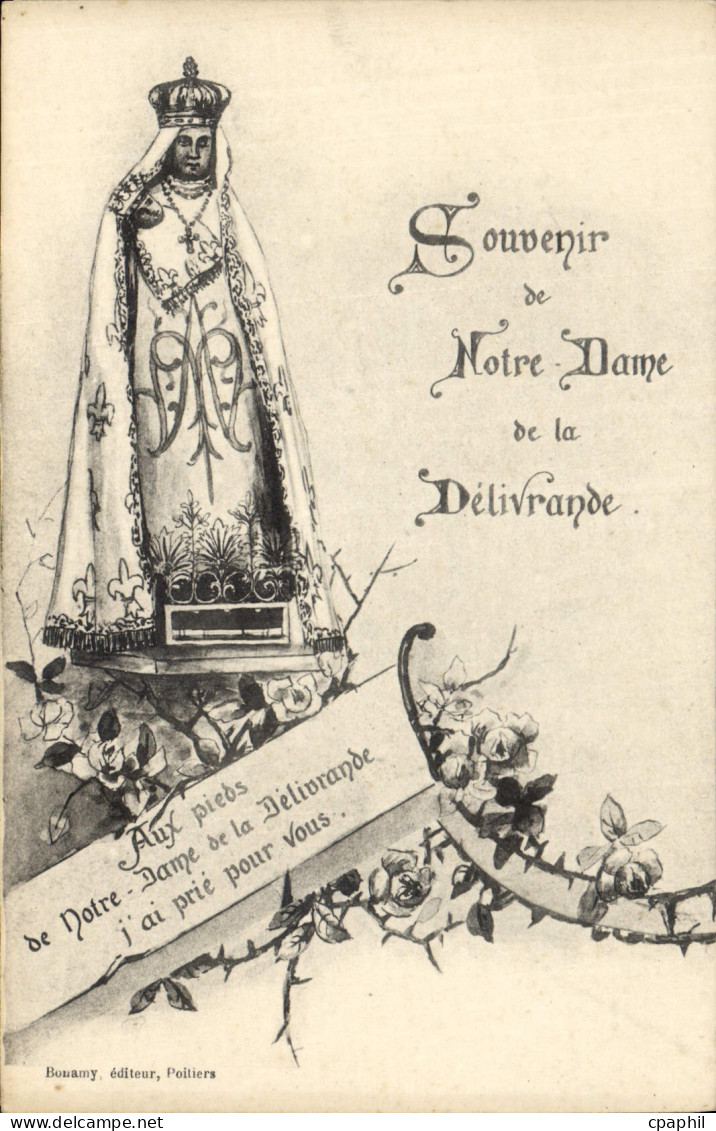 Souvenir
de
Notre-Dame
de la
Délivrande.
Aux pieds
de Notre-Dame de la Délivrande
j'ai prié pour vous.
Bonamy, éditeur, Poitiers
cpaphil